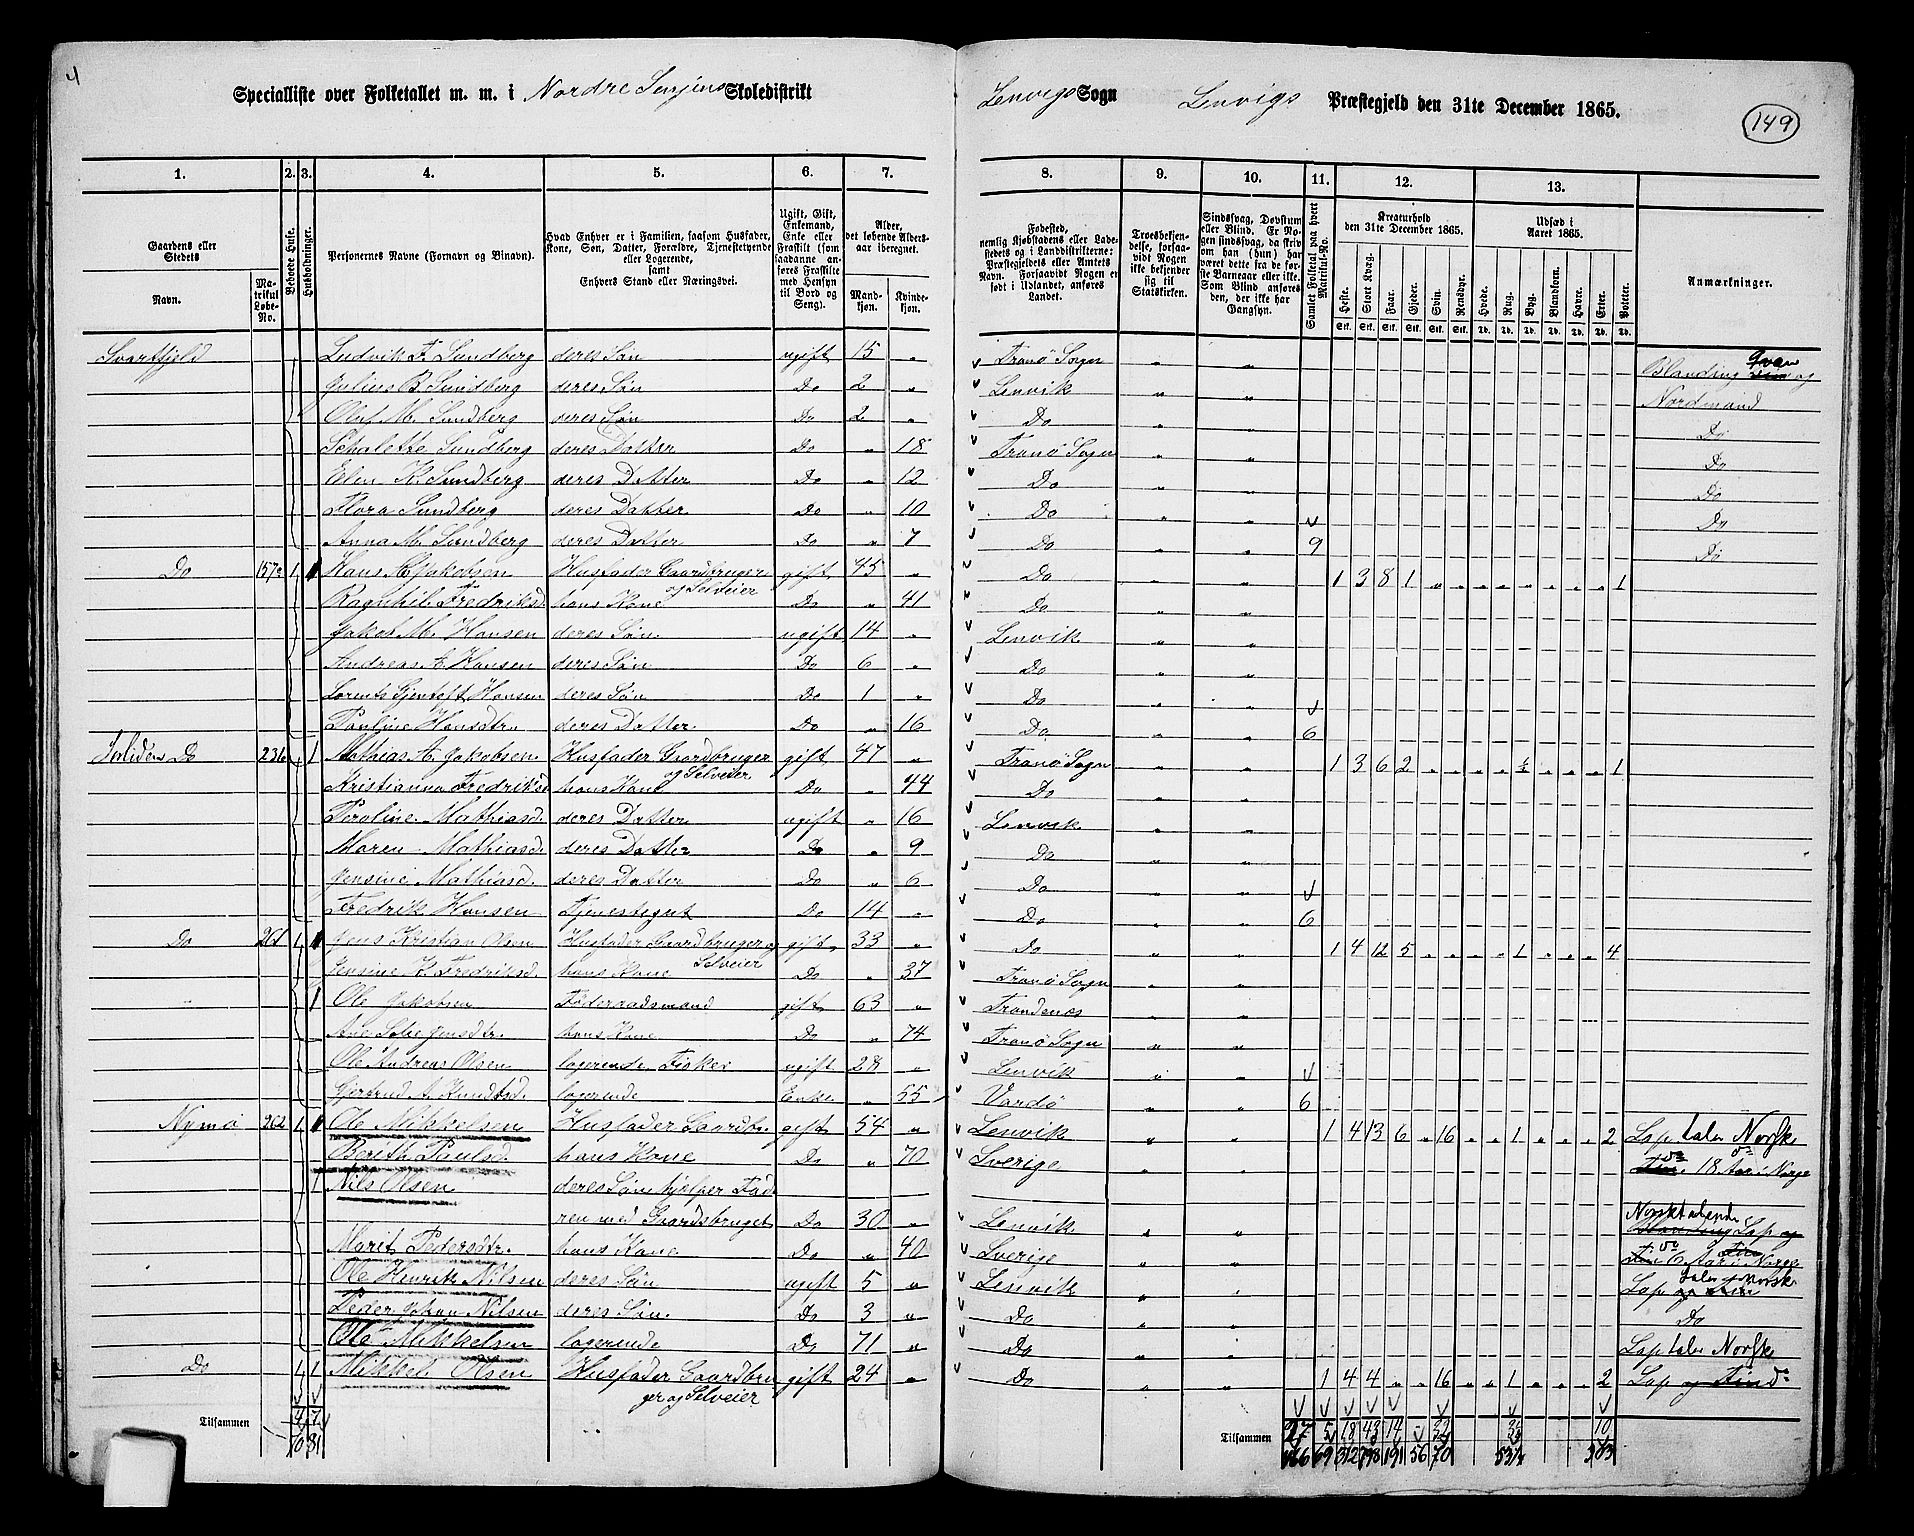 4
Specialliste over Folketallet m. m. i Nordre Senjens Skoledistrikt
Lenvigs Sogn Lenvigs Præstegjeld den 31te December 1865.
149
1. 2. 3. 4. 5. 6. 7. 8. 9. 10. 11. 12. 13.
Gaardens eller Stedets
Navn.
Matrikul Løbe-No.
Beboede Huse.
Husholdninger.
Personernes Navne (Fornavn og Binavn).
Hvad Enhver er i Familien, saasom Husfader, Kone, Søn, Datter, Forældre, Tjenestetyende eller Logerende, samt Enhvers Stand eller Næringsvei.
Ugift, Gift, Enkemand, Enke eller Fraskilt (som saadanne anføres Fraskilte med Hensyn til Bord og Seng).
Alder, det løbende Aldersaar iberegnet.
Mandkjøn. Kvindekjøn.
Fødested, nemlig Kjøbstadens eller Ladestedets og i Landdistrikterne: Præstegjeldets eller Amtets Navn. Forsaavidt Nogen er født i Udlandet, anføres Landet.
Troesbekjendelse, forsaavidt Nogen ikke bekjender sig til Statskirken.
Sindssvag, Døvstum eller Blind. Er Nogen sindssvag, da skriv om han (hun) har været dette fra de første Barneaar eller ikke. Som Blind anføres den, der ikke har Gangsyn.
Samlet Folketal paa hvert Matrikul-No.
Kreaturhold den 31te December 1865.
Heste. Stort Kvæg. Faar. Gjeder. Svin. Rensdyr.
Udsæd i Aaret 1865.
Hvede. Rug. Byg. Blandkorn. Havre. Erter. Poteter.
Anmærkninger.
Svartfjeld Ludvik F. Sundberg deres Søn ugift 15 „ Tranø Sogn „ „ Blanding Qvæn og
Julius B. Sundberg deres Søn Do 2 „ Lenvik „ „ Nordmand
Oluf M. Sundberg deres Søn Do 2 „ Do „ „ Do
Schalotte Sundberg deres Datter Do „ 18 Tranø Sogn „ „ Do
Elen K. Sundberg deres Datter Do „ 12 Do „ „ Do
Flora Sundberg deres Datter Do „ 10 Do „ „ Do
Anna M. Sundberg deres Datter Do „ 7 Do „ „ 9 Do
Do 157a 1 1 Hans A. Jakobsen Husfader Gaardbruger gift 45 „ Do „ „ 1 3 8 1 „ „ „ „ „ „ „ „ 1
og Selveier
Ragnhil. Fredriksd. hans Kone Do „ 41 Do „ „
Jakob M. Hansen deres Søn ugift 14 „ Lenvik „ „
Andreas A. Hansen deres Søn Do 6 „ Do „ „
Lorents Gjentoft Hansen deres Søn Do 1 „ Do „ „
Pauline Hansdtr. deres Datter Do „ 16 Do „ „ 6
Do 231 1 Mathias A. Jakobsen Husfader Gaardbruger gift 47 „ Tranø Sogn „ „ 1 3 6 2 „ „ „ „ ½ „ „ „ 1
og Selveier
Kristianna Fredriksd. hans Kone Do „ 44 Do „ „
Peroline Mathiasd. deres Datter ugift „ 16 Lenvik „ „
Maren Mathiasd. deres Datter Do „ 9 Do „ „
Jensine Mathiasd. deres Datter Do „ 6 Do „ „
Fredrik Hansen Tjenestegut Do 14 „ Do „ „ 6
Do 261 1 1 Jens Kristian Olsen Husfader Gaardbruger og gift 33 „ Do „ „ 1 4 12 5 „ „ „ „ 1 „ „ „ 4
Selveier
Jensine K. Fredriksd. hans Kone Do „ 37 Tranø Sogn „ „
„ 1 Ole Jakobsen Føderaadsmand gift 63 „ Trondenæs „ „
Ane Jensdtr. hans Kone Do „ 74 Tranø Sogn „ „
Ole Andreas Olsen logerende Fisker ugift 28 „ Lenvik „ „
Gjertrud A. Knudtsd. logerende Enke „ 55 Vardö „ „ 6
Nymo 262 1 1 Ole Mikkelsen Husfader Gaardbr. gift 54 „ Lenvik „ „ 1 4 13 6 „ 16 „ „ 1 „ „ „ 2 Lap taler Norsk
Berith Paulsd. hans Kone Do „ 70 Sverige „ „ Do 18 Aar i Norge
1 Nils Olsen deres Søn hjelper Fad-
ren med Gaardsbruget Do 30 „ Lenvik „ „ Norsktalende Lap
Marit Pedersdtr. hans Kone Do „ 40 Sverige „ „ Do 6 Aar i Norge
Ole Henrik Nilsen deres Søn ugift 5 „ Lenvik „ „ Lap taler Norsk
Peder Johan Nilsen deres Søn Do 3 „ Do „ „ Do
Ole Mikkelsen logerende Do 71 „ Do „ „ Lap taler Norsk
Do 1 1 Mikkel Olsen Husfader Gaardbru- gift 24 „ Do „ „ 1 4 4 „ „ 16 „ „ 1 „ „ „ 2 Lap og Find Do
ger og Selveier
Tilsammen 4 7
Tilsammen 27 5 18 43 14 „ 32 10